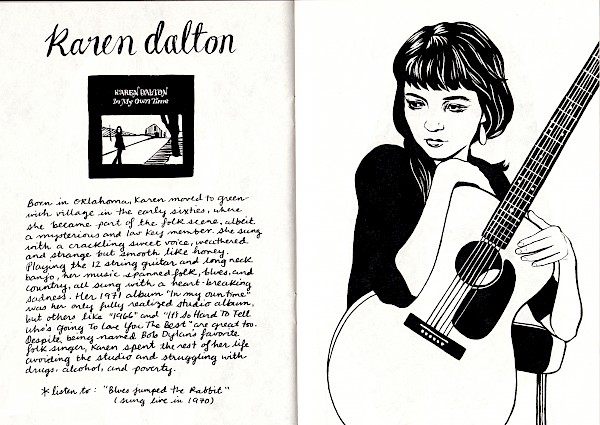 Karen dalton
KAREN DALTON
In My Own Time
Born in Oklahoma, Karen moved to green-
wich village in the early sixties, where
she became part of the folk scene, albeit
a mysterious and low key member. She sung
with a crackling sweet voice, weathered
and strange but smooth like honey.
Playing the 12 string guitar and long neck
banjo, her music spanned folk, blues, and
country, all sung with a heart-breaking
sadness. Her 1971 album "In my own time"
was her only fully realized studio album,
but others like "1966" and "It's So Hard To Tell
Who's Going To Love You The Best" are great too.
Despite being named Bob Dylan's favorite
folk singer, Karen spent the rest of her life
avoiding the studio and struggling with
drugs, alcohol, and poverty.
* listen to: "Blues jumped the Rabbit"
(sung live in 1970)